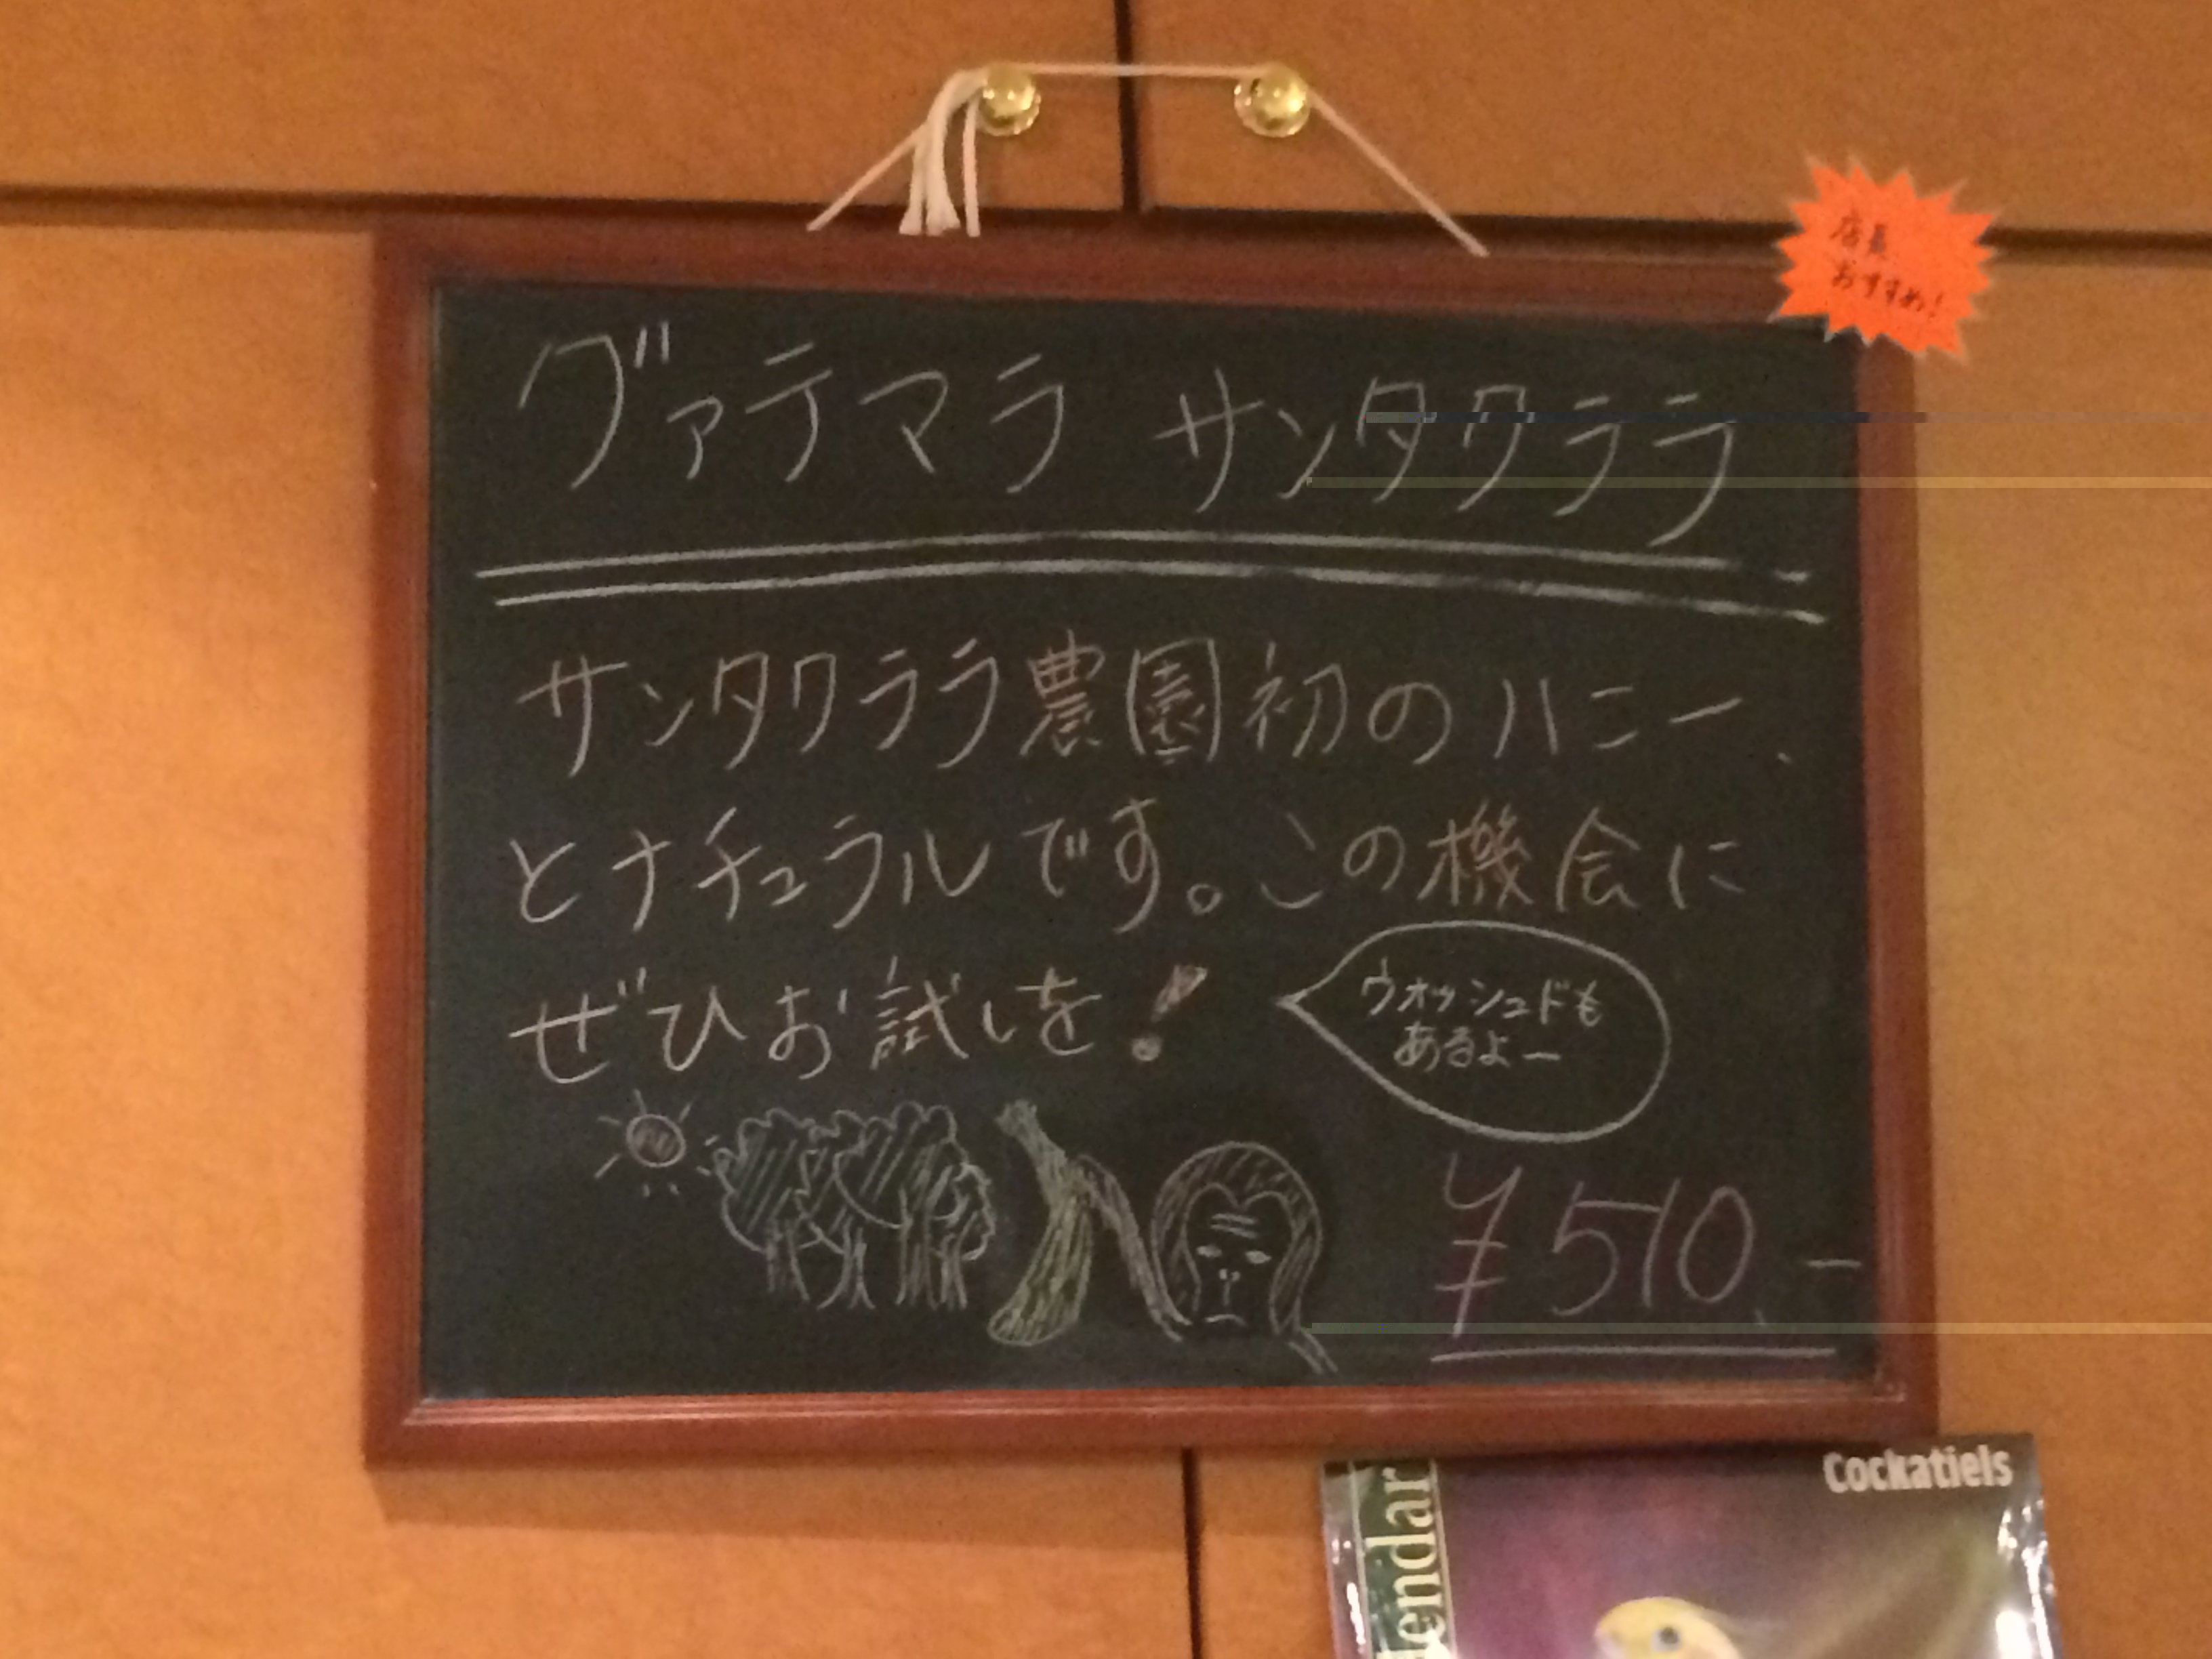 店長
おすすめ!
グァテマラ サンタクララ
サンタクララ農園初のハニー
とナチュラルです。この機会に
ぜひお試しを!
ウォッシュドも
あるよー
¥510.-
Cockatiels
lendar